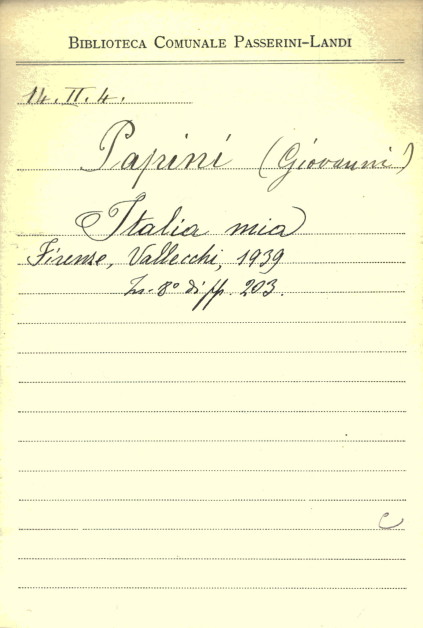 BIBLIOTECA COMUNALE PASSERINI-LANDI
14. II. 4.
Papini (Giovanni)
Italia mia
Firenze, Vallecchi, 1939
In-8º di pp. 203.
C